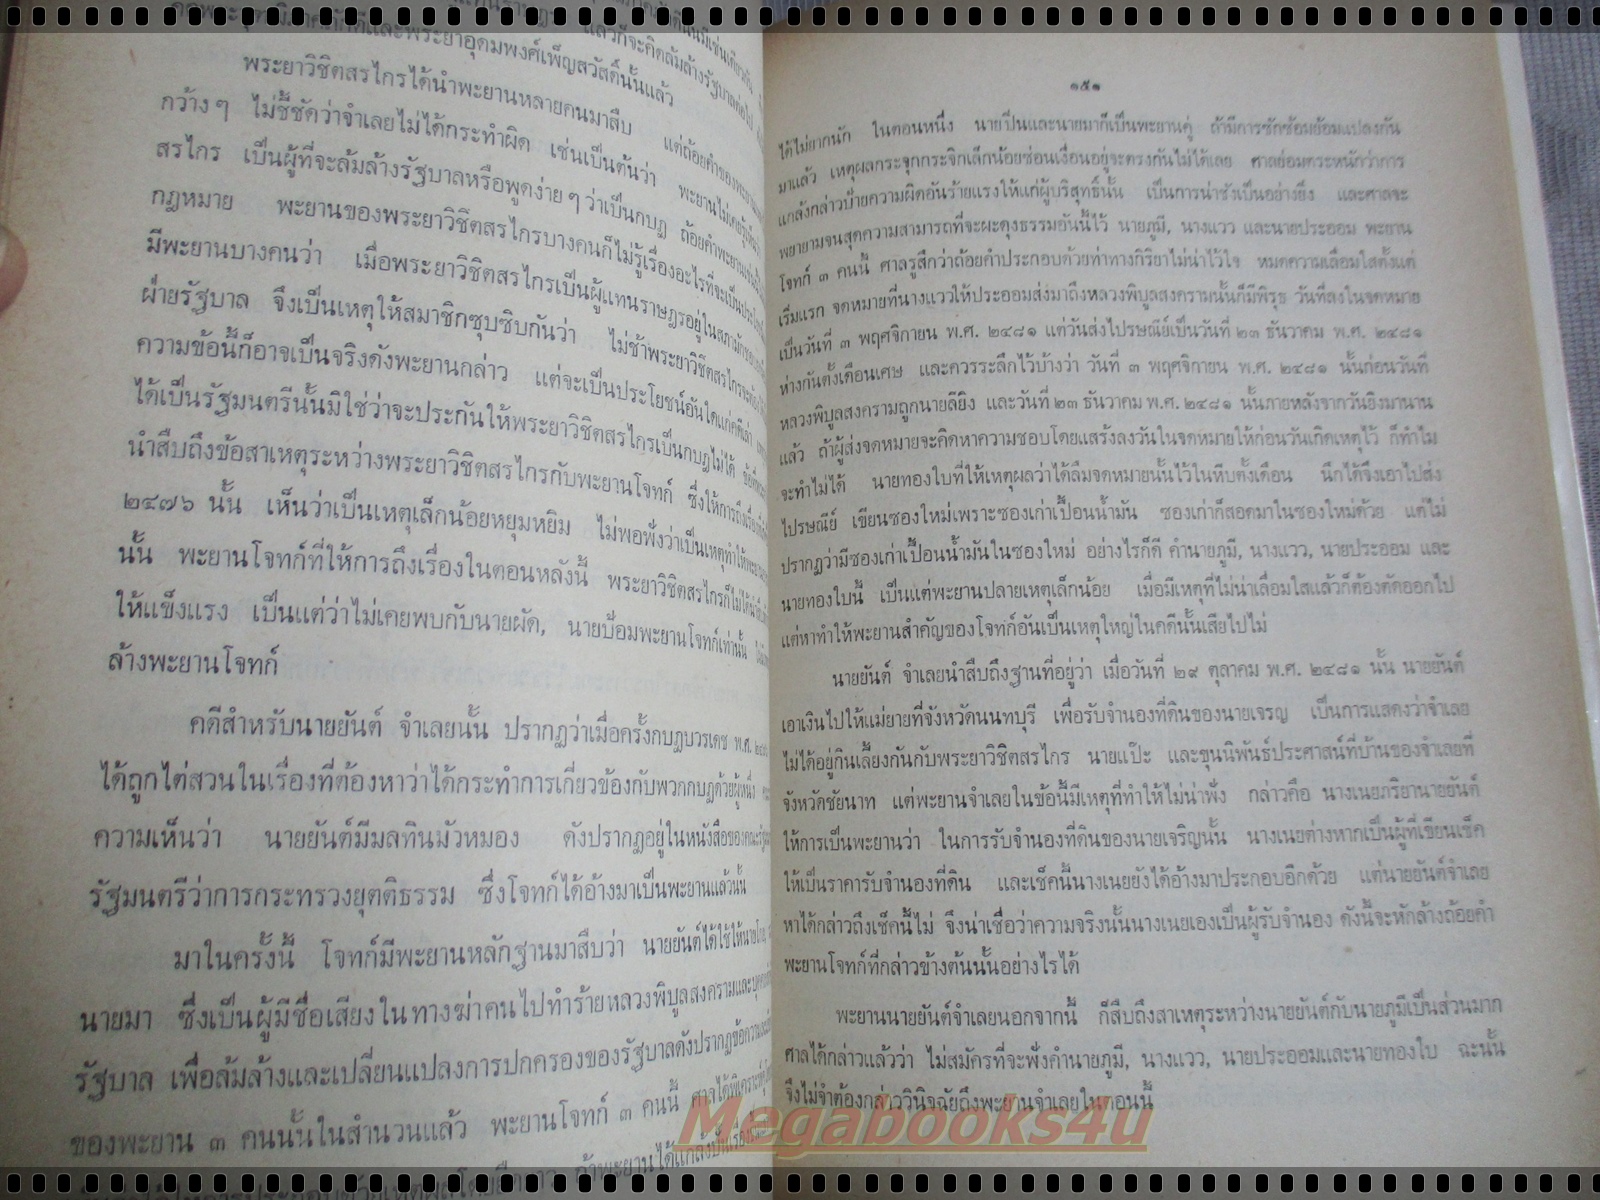 พระยาวิชิตสรไกรได้นำพะยานหลายคนมาสืบ แต่ถ้อยคำของพะยาน
กว้าง ๆ ไม่ชี้ชัดว่าจำเลยไม่ได้กระทำผิด เช่นเป็นต้นว่า พะยานไม่เคยรู้
สรไกร เป็นผู้ที่จะล้มล้างรัฐบาลหรือพูดง่าย ๆ ว่าเป็นกบฏ ถ้อยคำพะยานเช่นนี้
กฎหมาย พะยานของพระยาวิชิตสรไกรบางคนก็ไม่รู้เรื่องอะไรที่จะเป็น
มีพะยานบางคนว่า เมื่อพระยาวิชิตสรไกรเป็นผู้แทนราษฎรอยู่ในสภา
ฝ่ายรัฐบาล จึงเป็นเหตุให้สมาชิกซุบซิบกันว่า ไม่ช้าพระยาวิชิตสรไกรจะต้อง
ความข้อนี้ก็อาจเป็นจริงดังพะยานกล่าว แต่จะเป็นประโยชน์อันใดแก่คดีเล่า
ได้เป็นรัฐมนตรีนั้นมิใช่ว่าจะประกันให้พระยาวิชิตสรไกรเป็นกบฏไม่ได้
นำสืบถึงข้อสาเหตุระหว่างพระยาวิชิตสรไกรกับพะยานโจทก์ ซึ่งให้การถึงเรื่อง
๒๔๗๖ นั้น เห็นว่าเป็นเหตุเล็กน้อยหยุมหยิม ไม่พอฟังว่าเป็นเหตุทำให้
นั้น พะยานโจทก์ที่ให้การถึงเรื่องในตอนหลังนี้ พระยาวิชิตสรไกรก็ไม่ได้
ให้แข็งแรง เป็นแต่ว่าไม่เคยพบกับนายผัด, นายป้อมพะยานโจทก์เท่านั้น
ล้างพะยานโจทก์
คดีสำหรับนายยันต์ จำเลยนั้น ปรากฏว่าเมื่อครั้งกบฏบวรเดช พ.ศ.
ได้ถูกไต่สวนในเรื่องที่ต้องหาว่าได้กระทำการเกี่ยวข้องกับพวกกบฏด้วยผู้หนึ่ง
ความเห็นว่า นายยันต์มีมลทินมัวหมอง ดังปรากฏอยู่ในหนังสือของ
รัฐมนตรีว่าการกระทรวงยุตติธรรม ซึ่งโจทก์ได้อ้างมาเป็นพะยานแล้วนั้น
มาในครั้งนี้ โจทก์มีพะยานหลักฐานมาสืบว่า นายยันต์ได้ใช้ให้
นายมา ซึ่งเป็นผู้มีชื่อเสียงในทางฆ่าคนไปทำร้ายหลวงพิบูลสงครามและ
รัฐบาล เพื่อล้มล้างและเปลี่ยนแปลงการปกครองของรัฐบาลดังปรากฏข้อความ
ของพะยาน ๓ คนนั้นในสำนวนแล้ว พะยานโจทก์ ๓ คนนี้ ศาลได้
๑๕๑
ได้ไม่ยากนัก ในตอนหนึ่ง นายปี่นและนายมาก็เป็นพะยานคู่ ถ้ามีการซักซ้อมย้อมแปลงกัน
มาแล้ว เหตุผลกระจุกกระจิกเล็กน้อยซ่อนเงื่อนอยู่จะตรงกันไม่ได้เลย ศาลย่อมตระหนักว่าการ
แกล้งกล่าวป้ายความผิดอันร้ายแรงให้แก่ผู้บริสุทธิ์นั้น เป็นการน่าชังเป็นอย่างยิ่ง และศาลจะ
พยายามจนสุดความสามารถที่จะผะดุงธรรมอันนี้ไว้ นายภูมี, นางแวว และนายประออม พะยาน
โจทก์ ๓ คนนี้ ศาลรู้สึกว่าถ้อยคำประกอบด้วยท่าทางกิริยาไม่น่าไว้ใจ หมดความเลื่อมใสตั้งแต่
เริ่มแรก จดหมายที่นางแววให้ประออมส่งมาถึงหลวงพิบูลสงครามนั้นก็มีพิรุธ วันที่ลงในจดหมาย
เป็นวันที่ ๓ พฤศจิกายน พ.ศ. ๒๔๘๑ แต่วันส่งไปรษณีย์เป็นวันที่ ๒๓ ธันวาคม พ.ศ. ๒๔๘๑
ห่างกันตั้งเดือนเศษ และควรระลึกไว้บ้างว่า วันที่ ๓ พฤศจิกายน พ.ศ. ๒๔๘๑ นั้นก่อนวันที่
หลวงพิบูลสงครามถูกนายลียิง และวันที่ ๒๓ ธันวาคม พ.ศ. ๒๔๘๑ นั้นภายหลังจากวันยิงมานาน
แล้ว ถ้าผู้ส่งจดหมายจะคิดหาความชอบโดยแสร้งลงวันในจดหมายให้ก่อนวันเกิดเหตุไว้ ก็ทำไม
จะทำไม่ได้ นายทองใบที่ให้เหตุผลว่าได้ลืมจดหมายนั้นไว้ในหีบตั้งเดือน นึกได้จึงเอาไปส่ง
ไปรษณีย์ เขียนซองใหม่เพราะซองเก่าเปื้อนน้ำมัน ซองเก่าก็สอดมาในซองใหม่ด้วย แต่ไม่
ปรากฏว่ามีซองเก่าเปื้อนน้ำมันในซองใหม่ อย่างไรก็ดี คำนายภูมี, นางแวว, นายประออม และ
นายทองใบนี้ เป็นแต่พะยานปลายเหตุเล็กน้อย เมื่อมีเหตุที่ไม่น่าเลื่อมใสแล้วก็ต้องตัดออกไป
แต่หาทำให้พะยานสำคัญของโจทก์อันเป็นเหตุใหญ่ในคดีนั้นเสียไปไม่
นายยันต์ จำเลยนำสืบถึงฐานที่อยู่ว่า เมื่อวันที่ ๒๙ ตุลาคม พ.ศ. ๒๔๘๑ นั้น นายยันต์
เอาเงินไปให้แม่ยายที่จังหวัดนนทบุรี เพื่อรับจำนองที่ดินของนายเจรญ เป็นการแสดงว่าจำเลย
ไม่ได้อยู่กินเลี้ยงกันกับพระยาวิชิตสรไกร นายแป๊ะ และขุนนิพันธ์ประศาสน์ที่บ้านของจำเลยที่
จังหวัดชัยนาท แต่พะยานจำเลยในข้อนี้มีเหตุที่ทำให้ไม่น่าฟัง กล่าวคือ นางเนยภริยานายยันต์
ให้การเป็นพะยานว่า ในการรับจำนองที่ดินของนายเจริญนั้น นางเนยต่างหากเป็นผู้ที่เขียนเช็ค
ให้เป็นราคารับจำนองที่ดิน และเช็คนี้นางเนยยังได้อ้างมาประกอบอีกด้วย แต่นายยันต์จำเลย
หาได้กล่าวถึงเช็คนี้ไม่ จึงน่าเชื่อว่าความจริงนั้นนางเนยเองเป็นผู้รับจำนอง ดังนี้จะหักล้างถ้อยคำ
พะยานโจทก์ที่กล่าวข้างต้นนั้นอย่างไรได้
พะยานนายยันต์จำเลยนอกจากนี้ ก็สืบถึงสาเหตุระหว่างนายยันต์กับนายภูมีเป็นส่วนมาก
ศาลได้กล่าวแล้วว่า ไม่สมัครที่จะฟังคำนายภูมี, นางแวว, นายประออมและนายทองใบ ฉะนั้น
จึงไม่จำต้องกล่าววินิจฉัยถึงพะยานจำเลยในตอนนี้
Megabooks4u